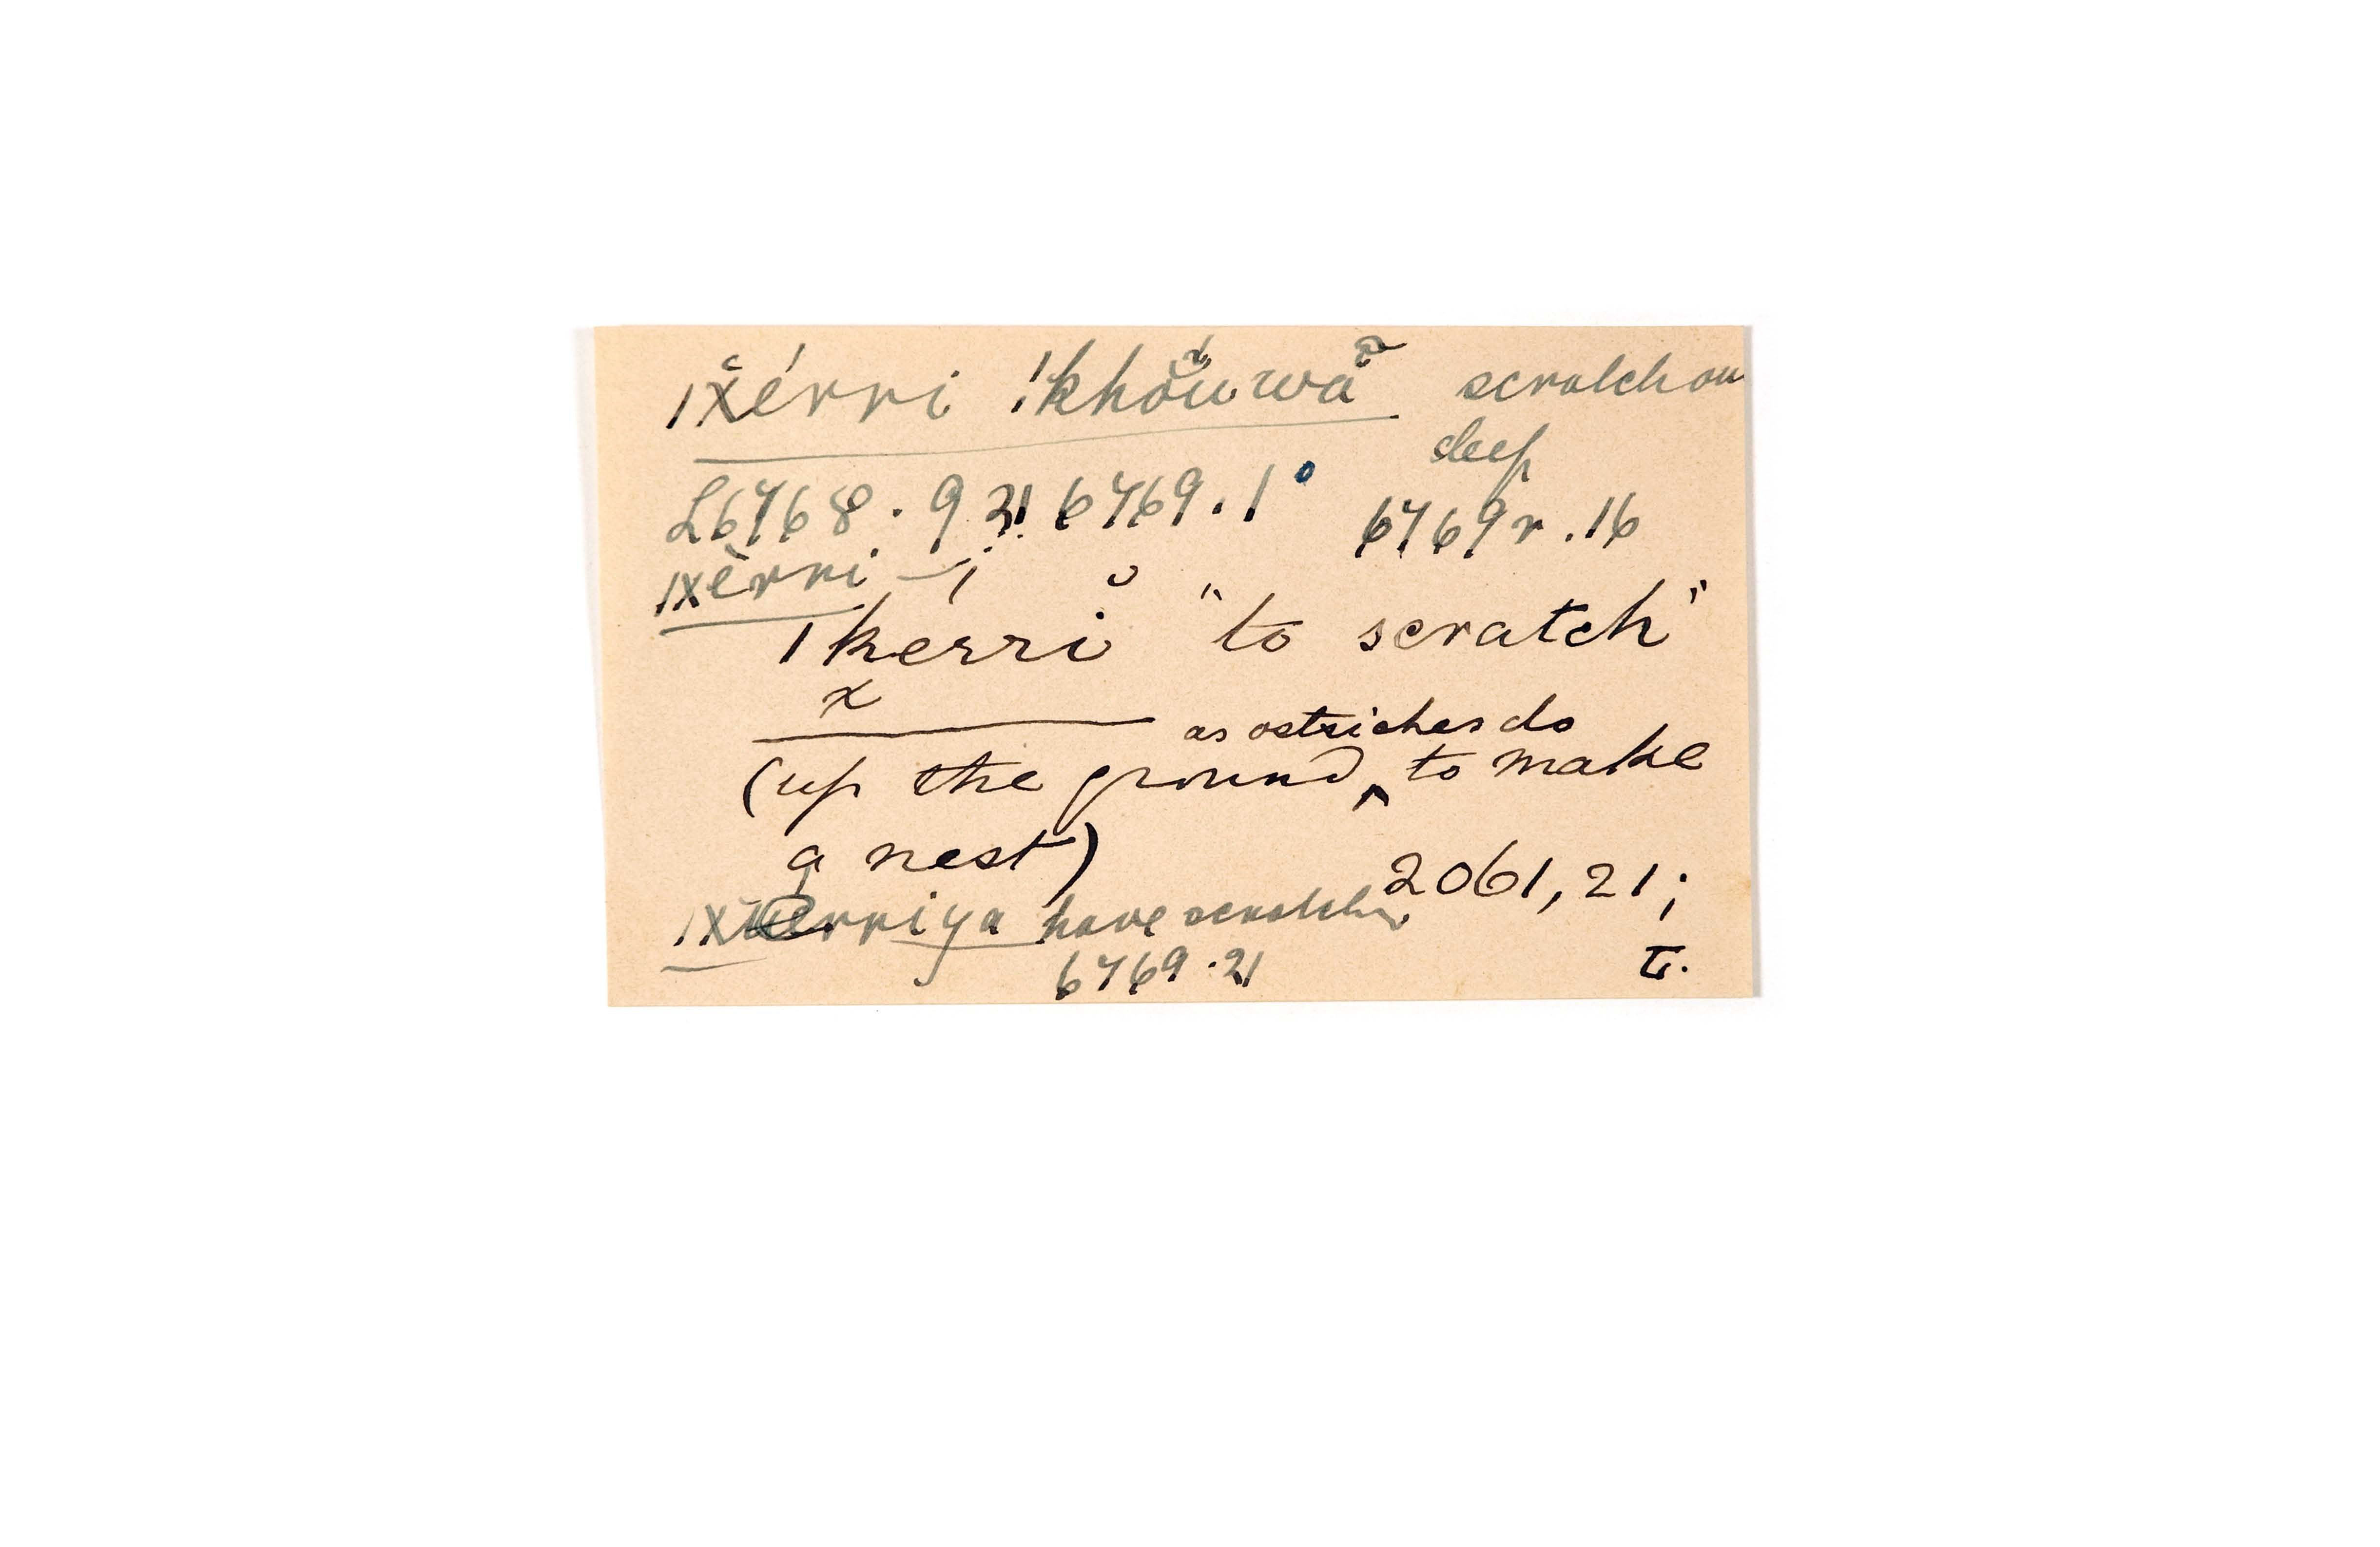 /x̆érri !khóuwa͠ scratch ou
deep
L6768.9 21 6769.1° 6769r.16
/xèrri –;
/kerri ̆ "to scratch"
x
as ostriches do
(up the ground ‸ to make
a nest) 2061,21;
/xerriya have scratch
6769.21 T.